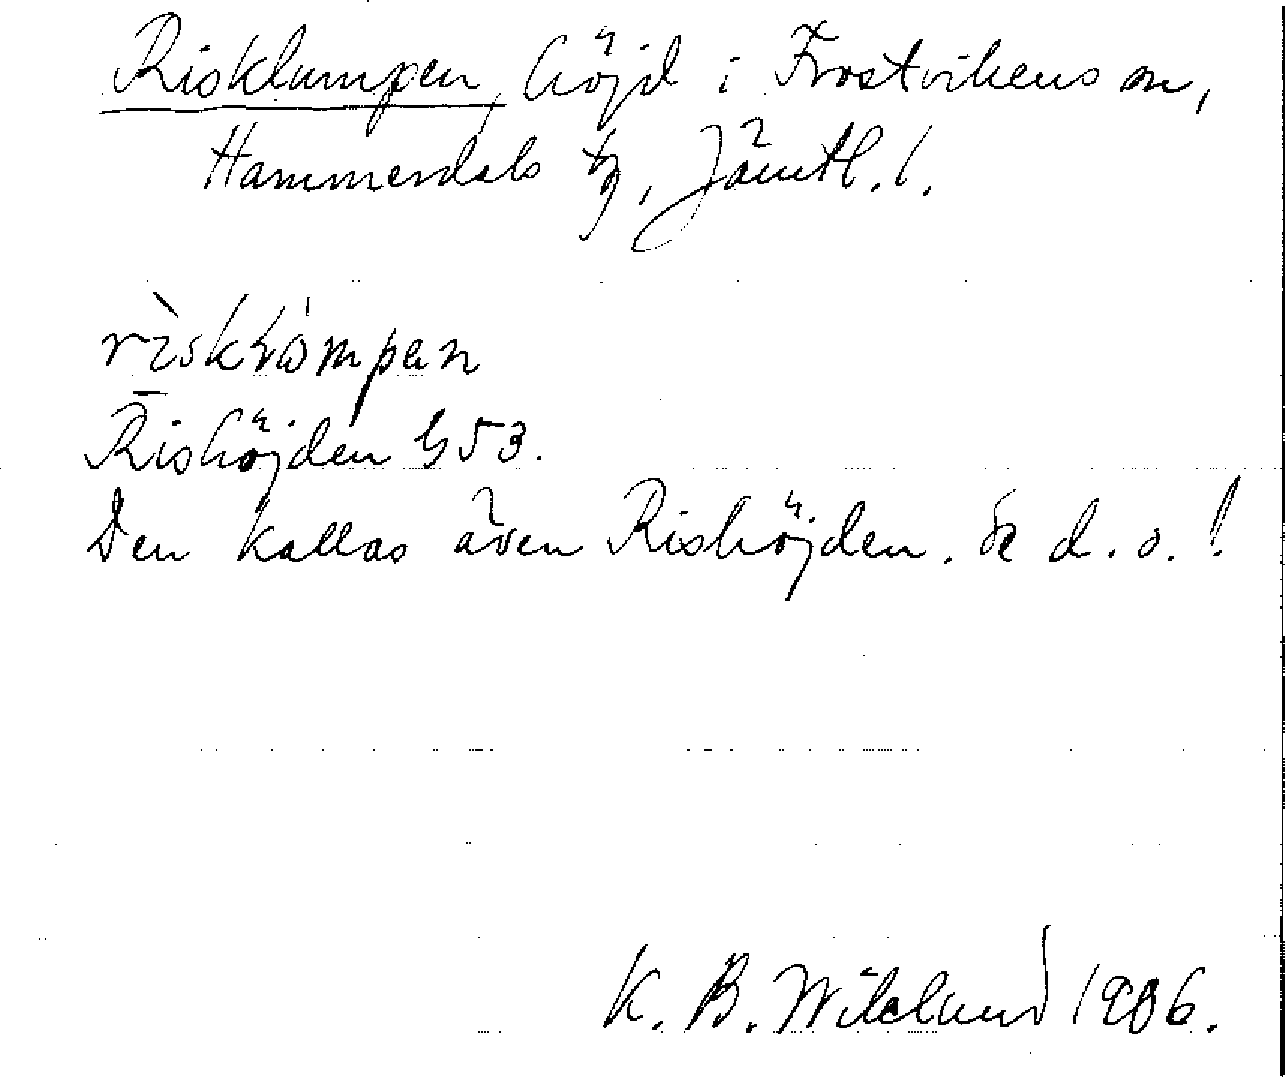 Risklumpen, höjd i Frostvikens sn,
Hammerdals tg, Jämtl. l.
Rishöjden G 53.
Den kallas även Rishöjden. Se d. o.!
K. B. Wiklund 1906.